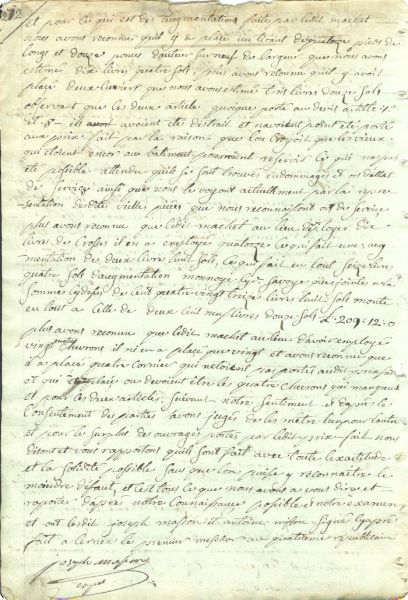 et pour ce qui est des augmentations faites par ledit machet
nous avons reconnu quil y a placé un tirant de quatorze pieds de
longs et douze pouces dauteur sur neuf de largeur que nous avons
estimé dix livres quatre sols, plus avons reconnu quil y avoit
placé deux que nous avons estimé trois livres douze sols
observant que ces deux article quoique porté au devit article 4e
et 5e ils avoient été distrait et n'avoient point été porté
aux prix fait par la raison que lon croyoit que les vieux
qui étoient encor au batiment pourroient reservir ce qui na pas
été possible attendu quils se sont trouvés endommagés et ors detat
de service ainsi que nous le voyons actuellement par la repre
sentation desdites vielles pieces que nous reconnaissont ors de service
plus avons reconnu que ledit machet au lieu demployer dix
livres de crosses il en a employé quatorze ce qui fait une aug
mentation de deux livres huit sols, ce qui fait en tout seize livres
quatre sols daugmentation monnoye de Savoye jointes a la
somme cydessus de cent quatre vingt treize livres huit sols monte
en tout a celle de deux cent neuf livres douze sols L 209:12.0
plus avons reconnu que ledit machet au lieu davoir employé
vingt quatre chevrons il n'en a placé que vingt et avons reconnu que
il a placé quatre cornier qui nétoient pas portés audit prix fait
et qui ou devoient être les quatre chevrons qui manquent
et pour ces deux articles, suivant notre sentiment et d'après le
consentement des parties avons jugés de les mètre lun pour lautre
et pour le surplus des ouvrages portés par ledit prix fait nous
ditont et vous rapportont quils sont fait avec toute l'exactitude
et la solidité possible sans que lon puisse y reconnaitre le
moindre défaut, et c'est tous ce que nous avons a vous dire et
raporter d'après notre connaissance possible et notre examen
et ont lesdit joseph masson et antoine signé
fait a Cernex le premier messidor an quatrieme républicain
joseph masson
expert